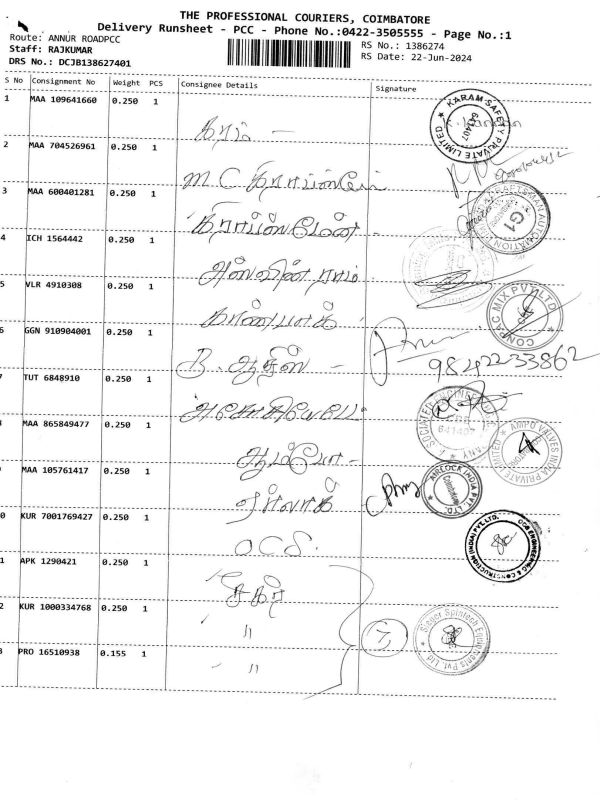 THE PROFESSIONAL COURIERS, COIMBATORE
Delivery Runsheet - PCC - Phone No.:0422-3505555 - Page No.:1
Route: ANNUR ROADPCC
Staff: RAJKUMAR
DRS No.: DCJB138627401
RS No.: 1386274
RS Date: 22-Jun-2024
S No Consignment No Weight PCS Consignee Details Signature
1 MAA 109641660 0.250 1
கரம் —
KARAM SAFETY PRIVATE LIMITED
641407
2 MAA 704526961 0.250 1
M.C கிராப்ஸ்மேன்
3 MAA 600401281 0.250 1
கிராப்ஸ்மேன்
AUTOMATION
G1
4 ICH 1564442 0.250 1
அஸ்வின் ராம்
5 VLR 4910308 0.250 1
கான்பாக்
CONPAC MIX PVT LTD
6 GGN 910904001 0.250 1
B. ஆதிஸ் —
9842233862
7 TUT 6848910 0.250 1
641407
8 MAA 865849477 0.250 1
ஆம்போ —
AMPO VALVES INDIA PRIVATE LIMITED
9 MAA 105761417 0.250 1
ஏர்லாக்
AIRLOCK INDIA PVT. LTD.
Coimbatore
0 KUR 7001769427 0.250 1
OCS.
OCS ENGINEERING & CONSTRUCTION (INDIA) PVT. LTD.
1 APK 1290421 0.250 1
சீகர்
2 KUR 1000334768 0.250 1
"
3
Sieger Spintech Equipments Pvt. Ltd.
3 PRO 16510938 0.155 1
"